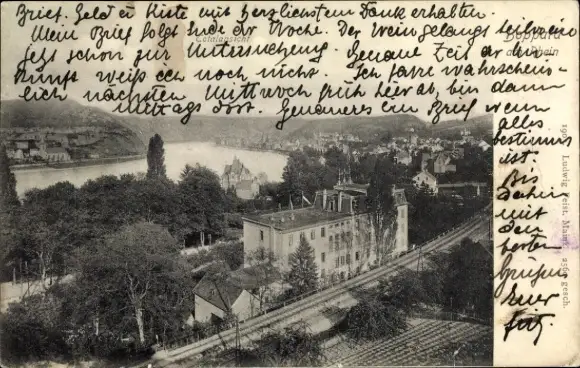 Brief, Geld u Kiste mit herzlichstem Danke erhalten.
Mein Brief folgt Ende der Woche. Der Wein gelangt
jetzt schon zur Untersuchung. Genaue Zeit der An-
kunft weiß ich noch nicht. Ich fahre wahrschein-
lich nächsten Mittwoch früh hier ab, bin dann
mittags dort. Genaueres im Brief wenn
alles
bestimmt
ist.
Bis
dahin
mit
den
besten
Grüßen
Euer
Fritz.
Totalansicht
Boppard
Rhein
Ludwig Feist, Mainz
gesch.